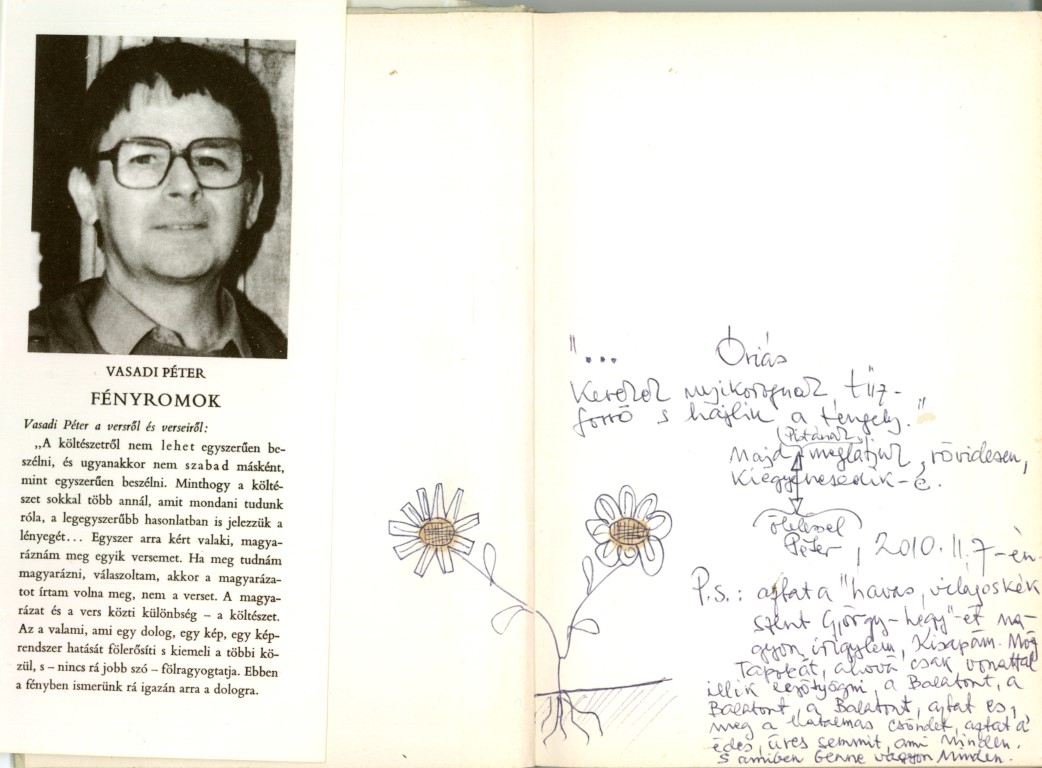 VASADI PÉTER
FÉNYROMOK
Vasadi Péter a versről és verseiről:
„A költészetről nem lehet egyszerűen be-
szélni, és ugyanakkor nem szabad másként,
mint egyszerűen beszélni. Minthogy a költé-
szet sokkal több annál, amit mondani tudunk
róla, a legegyszerűbb hasonlatban is jelezzük a
lényegét... Egyszer arra kért valaki, magya-
ráznám meg egyik versemet. Ha meg tudnám
magyarázni, válaszoltam, akkor a magyaráza-
tot írtam volna meg, nem a verset. A magya-
rázat és a vers közti különbség – a költészet.
Az a valami, ami egy dolog, egy kép, egy kép-
rendszer hatását fölerősíti s kiemeli a többi kö-
zül, s – nincs rá jobb szó – fölragyogtatja. Ebben
a fényben ismerünk rá igazán arra a dologra.
"... Óriás
kerekek nyikorognak, tűz-
forró s hajlik a tengely."
(Pistának)
Majd meglátjuk, rövidesen,
kiegyenesedik-é.
öleléssel
Péter, 2010. 11. 7-én
P.S.: azt a "havas, világoskék
Szent György-hegy"-et na-
gyon irigylem, Kisapám. Még
Tapolcát, ahová csak vonattal
illik, a Balatont, a
Balatont, a Balatont, azt és,
meg a hatalmas csöndet, azt a
édes, üres semmit, ami Minden.
s amiben benne vagyon Minden.